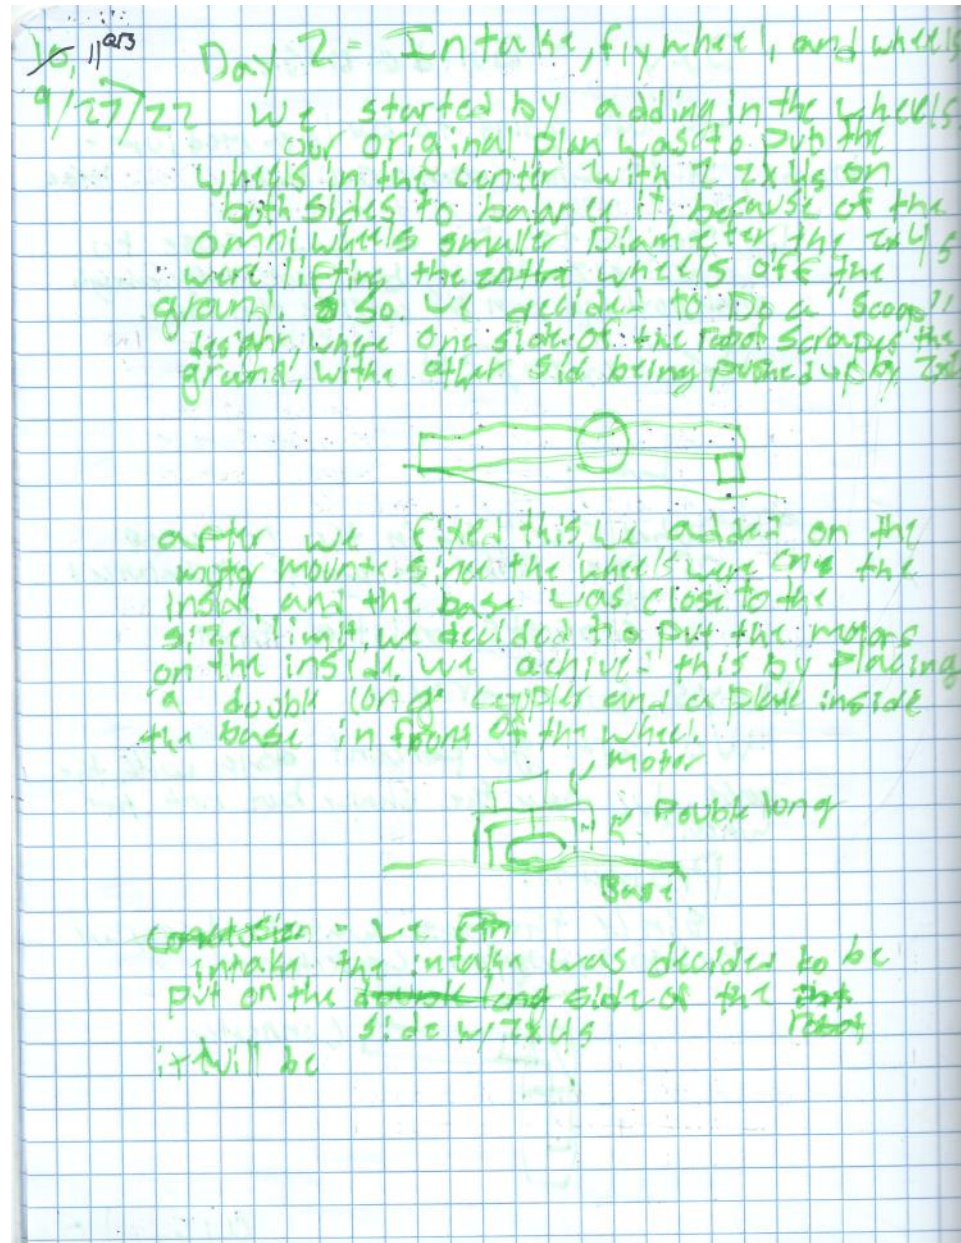 10, 11
Day 2 = Intake, flywheel, and wheels
9/27/22 We started by adding in the wheels
our original plan was to put the
wheels in the center with 2 2x4s on
both sides to balance it, because of the
omni wheels smaller Diameter, the 2x4s
were lifting the entire wheels off the
ground. So we decided to Do a "scoop"
design, where one side of the robot scrapes the
ground, with other sid being pushed up by
after we fixed this, we added on the
motor mounts. since the wheels were the
inside and the base was close to the
size limit, we decided to put the motors
on the inside, we achived this by placing
a double long coupler and a plate inside
the base in front of the wheel.
motor
Double long
Base
Conclusion - we
intake the intake was decided to be
put on the double long side of the
side w/ 2x4s robot
it will be